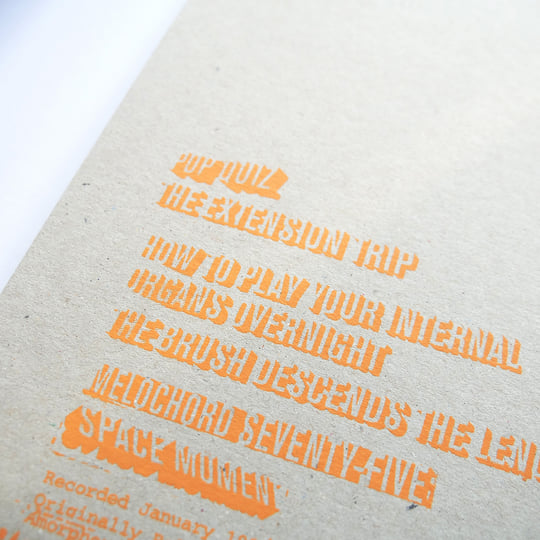 POP QUIZ
THE EXTENSION TRIP
HOW TO PLAY YOUR INTERNAL
ORGANS OVERNIGHT
THE BRUSH DESCENDS THE
MELOCHORD SEVENTY-FIVE
SPACE MOMENT
Recorded January
Originally